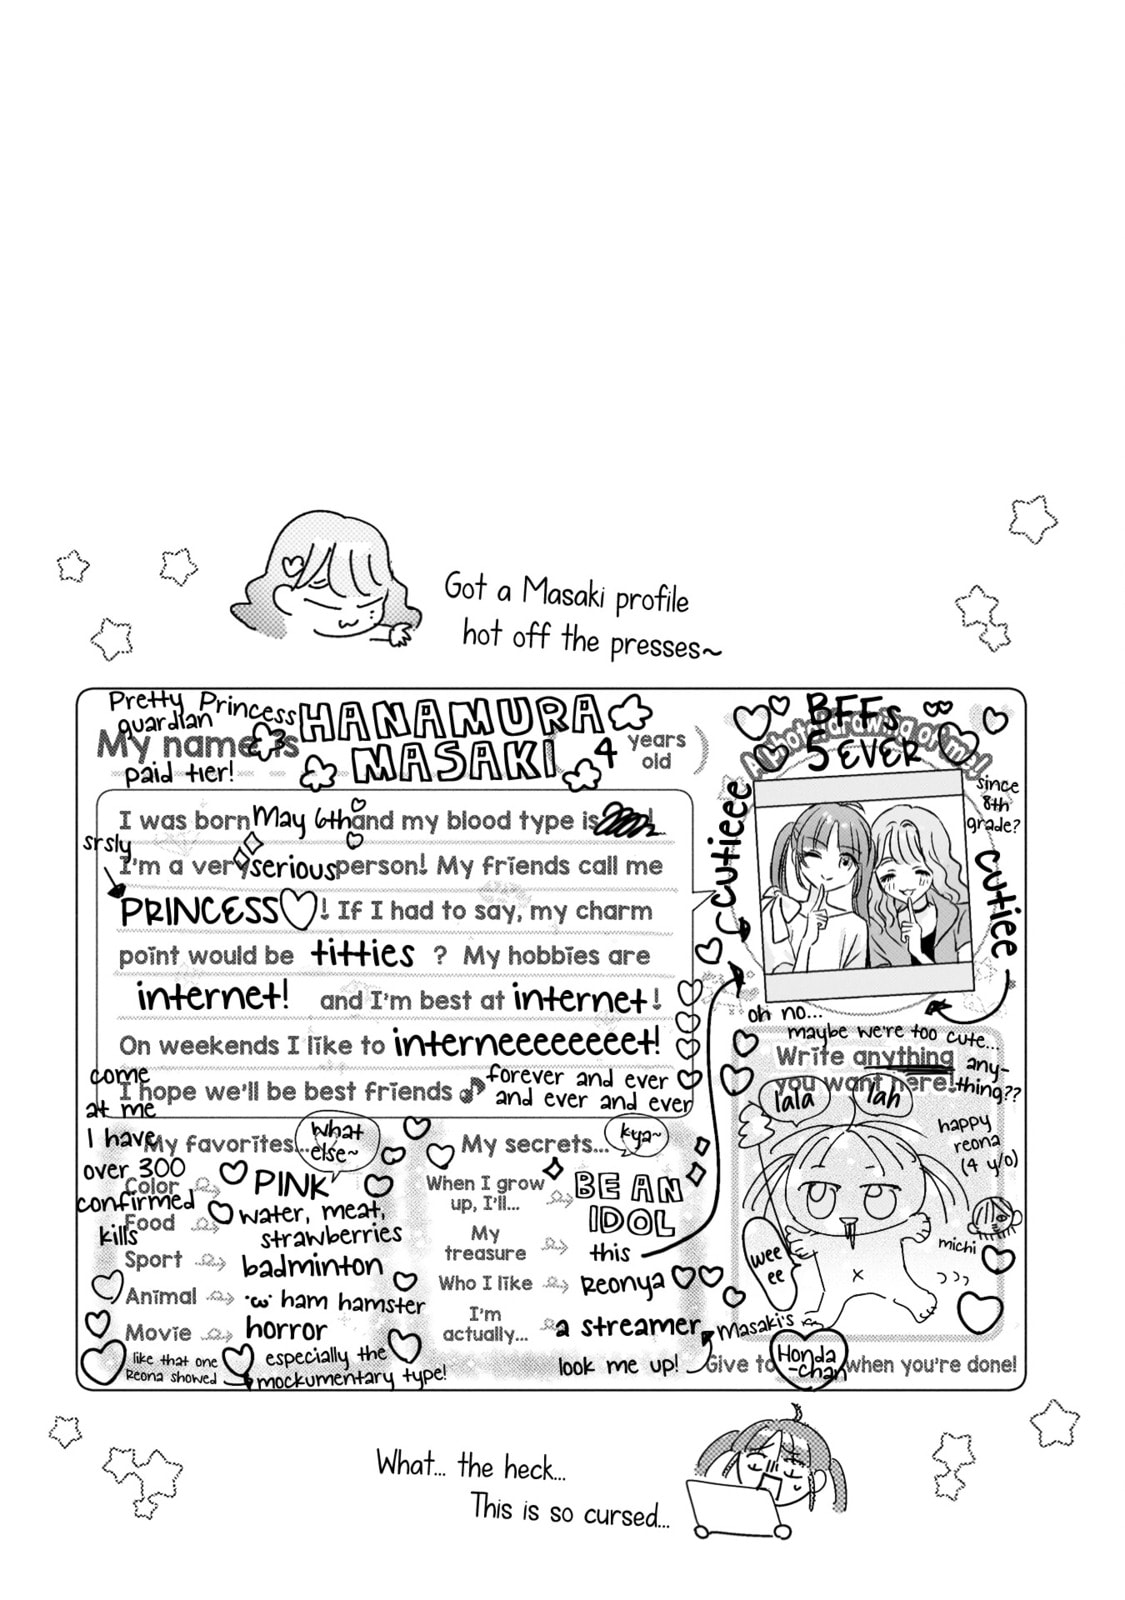 Got a Masaki profile
hot off the presses~
Pretty Princess
guardian
My name is
HANAMURA
MASAKI
4 years
old )
paid tier!
I was born May 6th and my blood type is
srsly
I'm a very serious person! My friends call me
PRINCESS♡! If I had to say, my charm
point would be titties ? My hobbies are
internet! and I'm best at internet!
On weekends I like to interneeeeeeeet!
I hope we'll be best friends♪ forever and ever
and ever and ever
come
at me
I have
over 300
confirmed
kills
My favorites...
what
else~
Color PINK
Food water, meat,
strawberries
Sport badminton
Animal ·ω· ham hamster
Movie horror
like that one
Reona showed
especially the
mockumentary type!
My secrets...
kya~
When I grow
up, I'll...
BE AN
IDOL
My
treasure
this
Who I like Reonya ♡♡
I'm
actually...
a streamer
look me up!
BFFs
5EVER
A photo/drawing of me!
since
8th
grade?
cutieee
cutiee
oh no...
maybe we're too cute...
Write anything
you want here!
any-
thing??
lala
lah
happy
reona
(4 y/o)
michi
weee
ee
Masaki's
Give to Honda
-chan when you're done!
What... the heck...
This is so cursed...